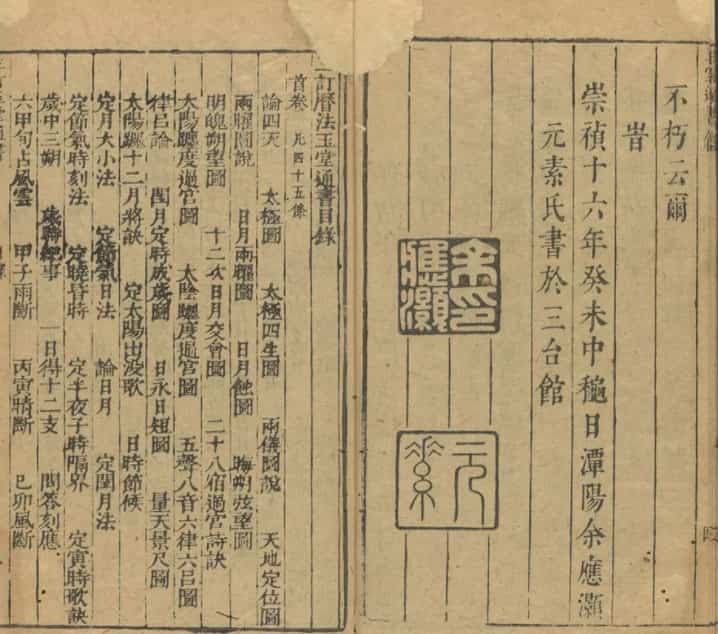 不朽云爾
旹
崇禎十六年癸未中穐日潭陽余應灝
元素氏書於三台館
余應灝印
元素
訂曆法玉堂通書目錄
首卷 凡四十五條
論四天 太極圖 太極四生圖 兩儀圖說 天地定位圖
兩曜圖說 日月兩曜圖 日月蝕圖 晦朔弦望圖
明魄朔望圖 十二次日月交會圖 二十八宿過宮詩訣
太陽躔度過宮圖 太陰躔度過宮圖 五聲八音六律六呂圖
律呂論 閏月定時成歲圖 日永日短圖 量天景尺圖
太陽躔十二月將訣 定太陽出沒歌 日時節候
定月大小法 定節氣日法 論日月 定閏月法
定節氣時刻法 定曉昏時 定半夜子時隔界 定寅時歌訣
歲中三朔 歲時紀事 一日得十二支 問答刻應
六甲旬占風雲 甲子雨斷 丙寅晴斷 己卯風斷